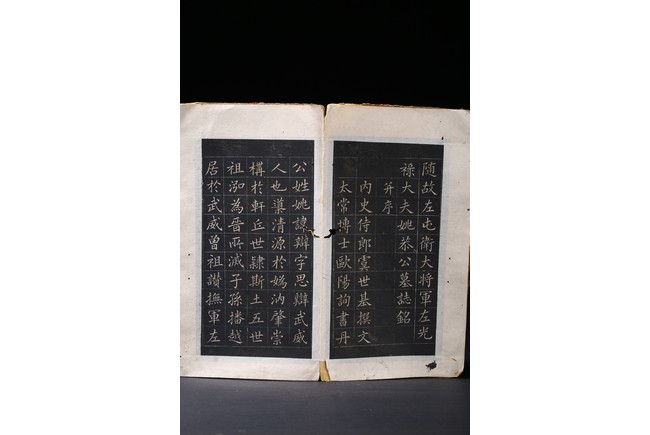 隨故左屯衛大将軍左光
祿大夫姚恭公墓誌銘
并序
内史侍郎虞世基撰文
太常博士歐陽詢書丹
公姓姚諱辯字思辯武威
人也導清源於媯汭肇崇
構於軒丘世隸斯土五世
祖泓為晉所滅子孫播越
居於武威曾祖讚撫軍左